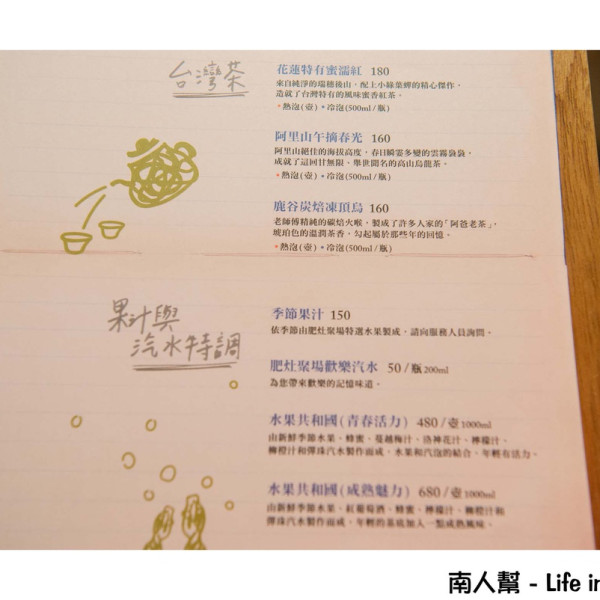 台灣茶
花蓮特有蜜濡紅 180
來自純淨的瑞穗後山,配上小綠葉蟬的精心傑作,
造就了台灣特有的風味蜜香紅茶。
•熱泡(壺) •冷泡(500ml/瓶)
阿里山午摘春光 160
阿里山絕佳的海拔高度,春日瞬霎多變的雲霧裊裊,
成就了這回甘無限、舉世聞名的高山烏龍茶。
•熱泡(壺) •冷泡(500ml/瓶)
鹿谷炭焙凍頂烏 160
老師傅精純的碳焙火喉,製成了許多人家的「阿爸老茶」,
琥珀色的溫潤茶香,勾起屬於那些年的回憶。
•熱泡(壺) •冷泡(500ml/瓶)
果汁與
汽水特調
季節果汁 150
依季節由肥灶聚場特選水果製成,請向服務人員詢問。
肥灶聚場歡樂汽水 50/瓶200ml
為您帶來歡樂的記憶味道。
水果共和國(青春活力) 480/壺1000ml
由新鮮季節水果、蜂蜜、蔓越梅汁、洛神花汁、檸檬汁、
柳橙汁和彈珠汽水製作而成,水果和汽泡的結合,年輕有活力。
水果共和國(成熟魅力) 680/壺1000ml
由新鮮季節水果、紅葡萄酒、蜂蜜、檸檬汁、柳橙汁和
彈珠汽水製作而成,年輕的基底加入一點成熟風味。
南人幫 - Life in